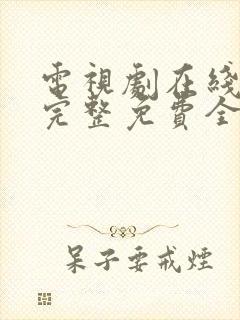 電視劇在綫
完整免費全
呆子要戒煙